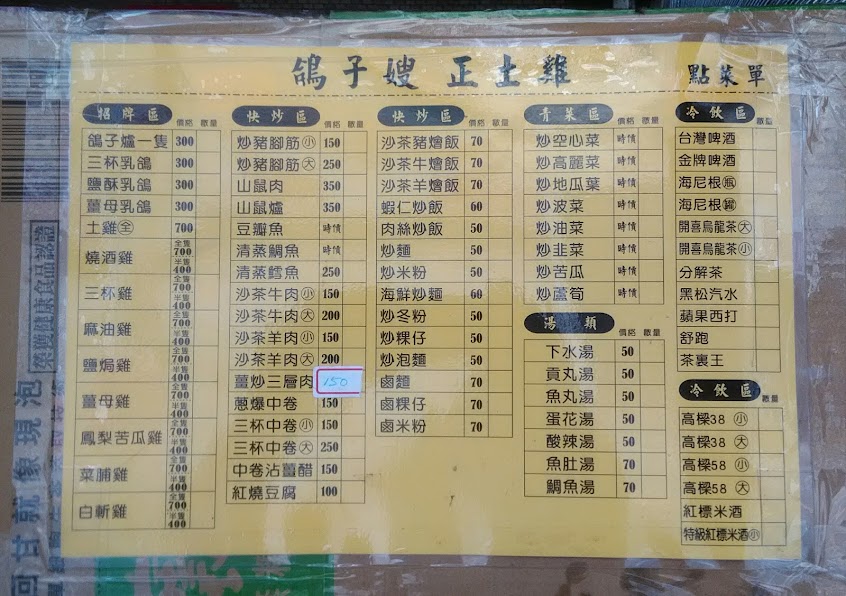 鴿子嫂 正土雞 點菜單
招牌區 價格 數量
鴿子爐一隻 300
三杯乳鴿 300
鹽酥乳鴿 300
薑母乳鴿 300
土雞全 700
燒酒雞 全隻 700 半隻 400
三杯雞 全隻 700 半隻 400
麻油雞 全隻 700 半隻 400
鹽焗雞 全隻 700 半隻 400
薑母雞 全隻 700 半隻 400
鳳梨苦瓜雞 全隻 700 半隻 400
菜脯雞 全隻 700 半隻 400
白斬雞 全隻 700 半隻 400
快炒區 價格 數量
炒豬腳筋小 150
炒豬腳筋大 250
山鼠肉 350
山鼠爐 350
豆瓣魚 時價
清蒸鯛魚 時價
清蒸鱈魚 250
沙茶牛肉小 150
沙茶牛肉大 200
沙茶羊肉小 150
沙茶羊肉大 200
薑炒三層肉 150
蔥爆中卷 150
三杯中卷小 150
三杯中卷大 250
中卷沾薑醋 150
紅燒豆腐 100
快炒區 價格 數量
沙茶豬燴飯 70
沙茶牛燴飯 70
沙茶羊燴飯 70
蝦仁炒飯 60
肉絲炒飯 50
炒麵 50
炒米粉 50
海鮮炒麵 60
炒冬粉 50
炒粿仔 50
炒泡麵 50
鹵麵 70
鹵粿仔 70
鹵米粉 70
青菜區 價格 數量
炒空心菜 時價
炒高麗菜 時價
炒地瓜葉 時價
炒波菜 時價
炒油菜 時價
炒韭菜 時價
炒苦瓜 時價
炒蘆筍 時價
湯類 價格 數量
下水湯 50
貢丸湯 50
魚丸湯 50
蛋花湯 50
酸辣湯 50
魚肚湯 70
鯛魚湯 70
冷飲區 數量
台灣啤酒
金牌啤酒
海尼根瓶
海尼根罐
開喜烏龍茶大
開喜烏龍茶小
分解茶
黑松汽水
蘋果西打
舒跑
茶裏王
冷飲區 數量
高樑38 小
高樑38 大
高樑58 小
高樑58 大
紅標米酒
特級紅標米酒小
榮獲健康食品認證
回甘就像現泡